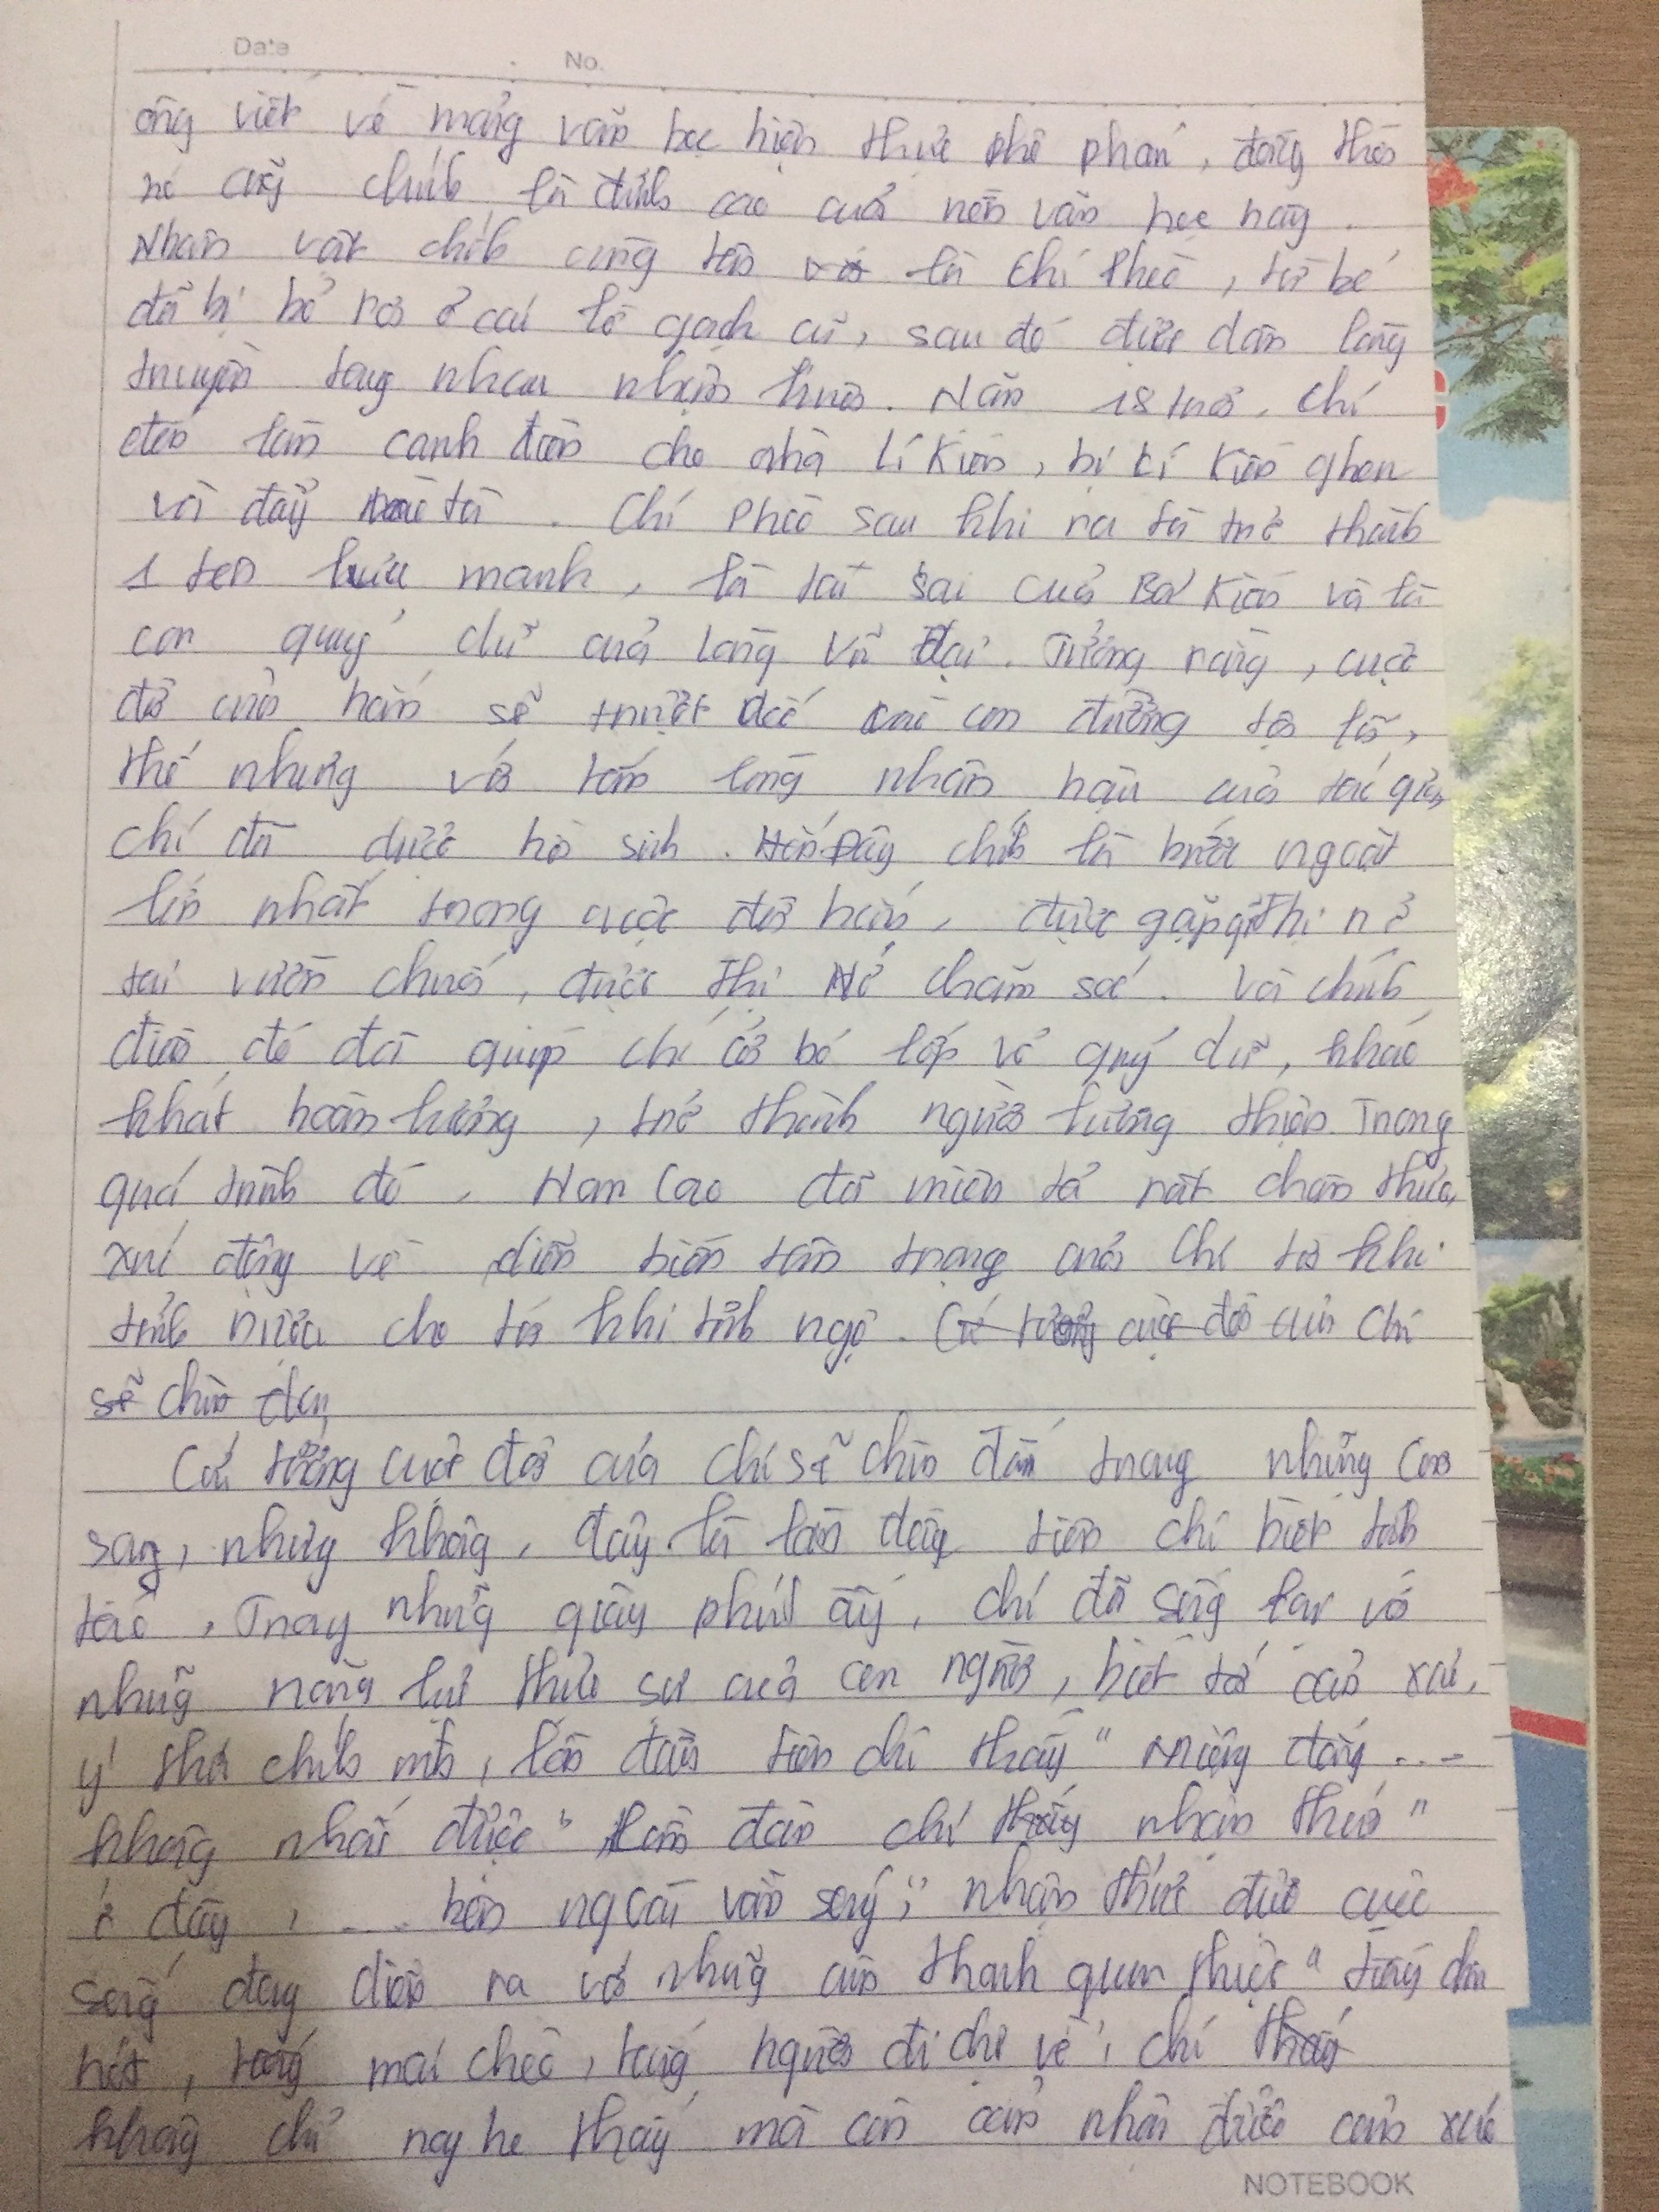 Date No.
ông viết về mảng văn học hiện thực phê phán, đồng thời
nó cũng chính là đỉnh cao của nền văn học này.
Nhân vật chính cùng tên là Chí Phèo, từ bé
đã bị bỏ rơi ở cái lò gạch cũ, sau đó được dân làng
truyền tay nhau nhận nuôi. Năm 18 tuổi, Chí
đến làm canh điền cho nhà Lí Kiến, bị Lí Kiến ghen
và đẩy tù. Chí Phèo sau khi ra tù trở thành
1 tên lưu manh, là tay sai của Bá Kiến và là
con quỷ dữ của làng Vũ Đại. Tưởng rằng, cuộc
đời của hắn sẽ trượt dốc con đường tội lỗi,
thế nhưng với tấm lòng nhân hậu của tác giả,
chí đã được hồi sinh. Đây chính là bước ngoặt
lớn nhất trong cuộc đời hắn, được gặp gỡ Thị nở
tại vườn chuối, được Thị Nở chăm sóc. Và chính
điều đó đã giúp chí cởi bỏ lớp vỏ quỷ dữ, khao
khát hoàn lương, trở thành người lương thiện. Trong
quá trình đó, Nam Cao đã miên tả rất chân thực,
xúc động về diễn biến tâm trạng của Chí từ khi
tỉnh rượu cho tới khi tỉnh ngộ. Cứ tưởng cuộc đời của Chí
sẽ chìm đắm
Cứ tưởng cuộc đời của chí sẽ chìm đắm trong những cơn
say, nhưng không, đây là lần đầu tiên chí biết tỉnh
táo. Trong những giây phút ấy, chí đã sống lại với
những năng lực thực sự của con người, biết tới cảm xúc,
ý thức chính mình, lần đầu tiên chí thấy " miệng đắng ...
không nhấc được" lần đầu chí thấy nhận thức "
ở đây, .... bên ngoài vẫn sáng", nhận thức được cuộc
sống đang diễn ra với những âm thanh quen thuộc " tiếng chim
hót, tiếng mái chèo, tiếng người đi chợ về", chí thấy
không chỉ nghe thấy mà còn cảm nhận được cảm xúc
NOTEBOOK